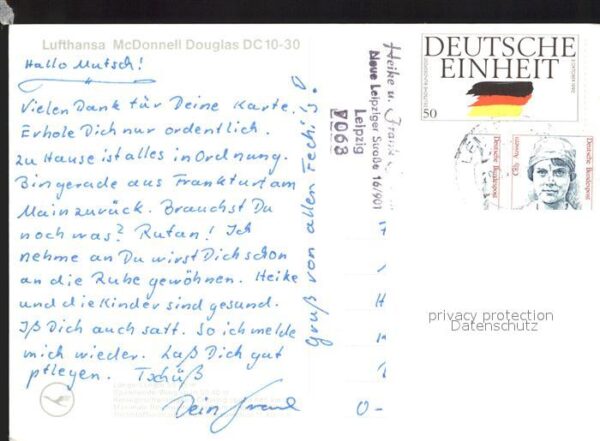 Lufthansa McDonnell Douglas DC 10-30
Hallo Mutsch!
Vielen Dank für Deine Karte.
Erhole Dich nur ordentlich.
Zu Hause ist alles in Ordnung.
Bin gerade aus Frankfurt am
Main zurück. Brauchst Du
noch was? Rufan! Ich
nehme an Du wirst Dich schon
an die Ruhe gewöhnen. Heike
und die Kinder sind gesund.
Iß Dich auch satt. So ich melde
mich wieder. Laß Dich gut
pflegen. Tschüß
Dein
Gruß von allen
Heike u. Frank
Neue Leipziger Straße 16/901
Leipzig
7063
DEUTSCHE
EINHEIT
50
Deutsche Bundespost
Cilly Aussem
privacy protection
Datenschutz
0-